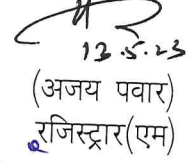 12.5.23
(अजय पवार)
रजिस्ट्रार(एम)